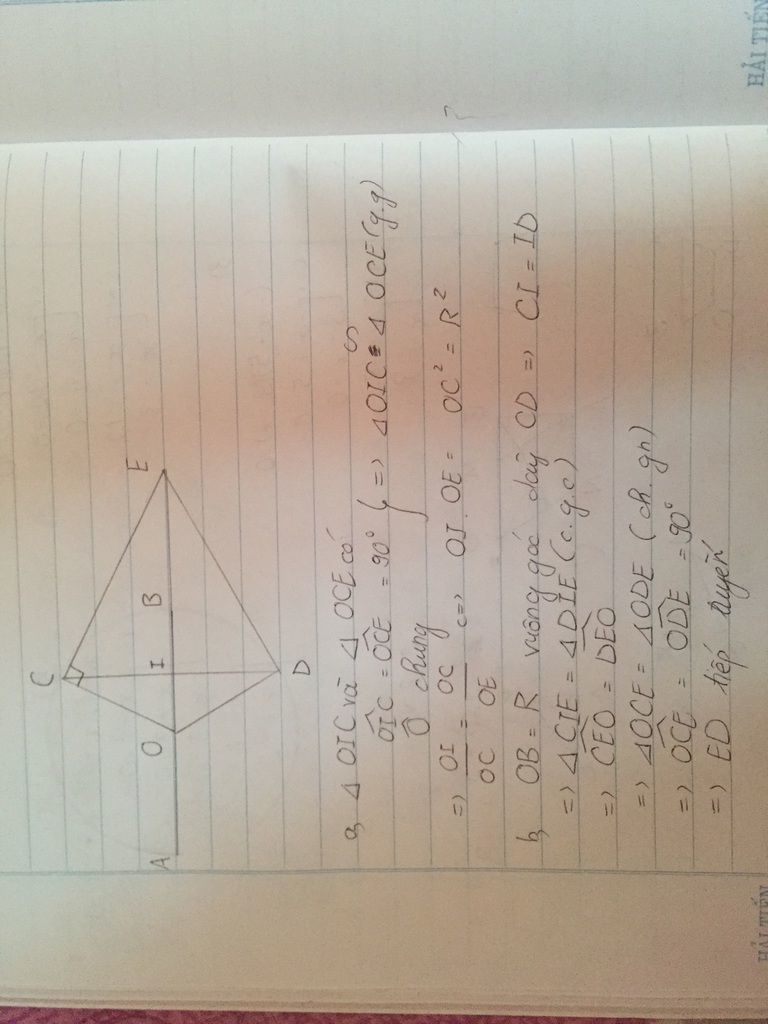 C
O
I
B
E
A
D
a, Δ OIC và Δ OCE có
OIC = OCE = 90° } => Δ OIC ∽ Δ OCE (g.g)
Ô chung
=> OI/OC = OC/OE <=> OI . OE = OC² = R²
b, OB = R vuông góc dây CD => CI = ID
=> Δ CIE = Δ DIE (c.g.c)
=> CEO = DEO
=> Δ OCE = Δ ODE (ch.gn)
=> OCE = ODE = 90°
=> ED tiếp tuyến
HẢI TIẾN
HẢI TIẾN